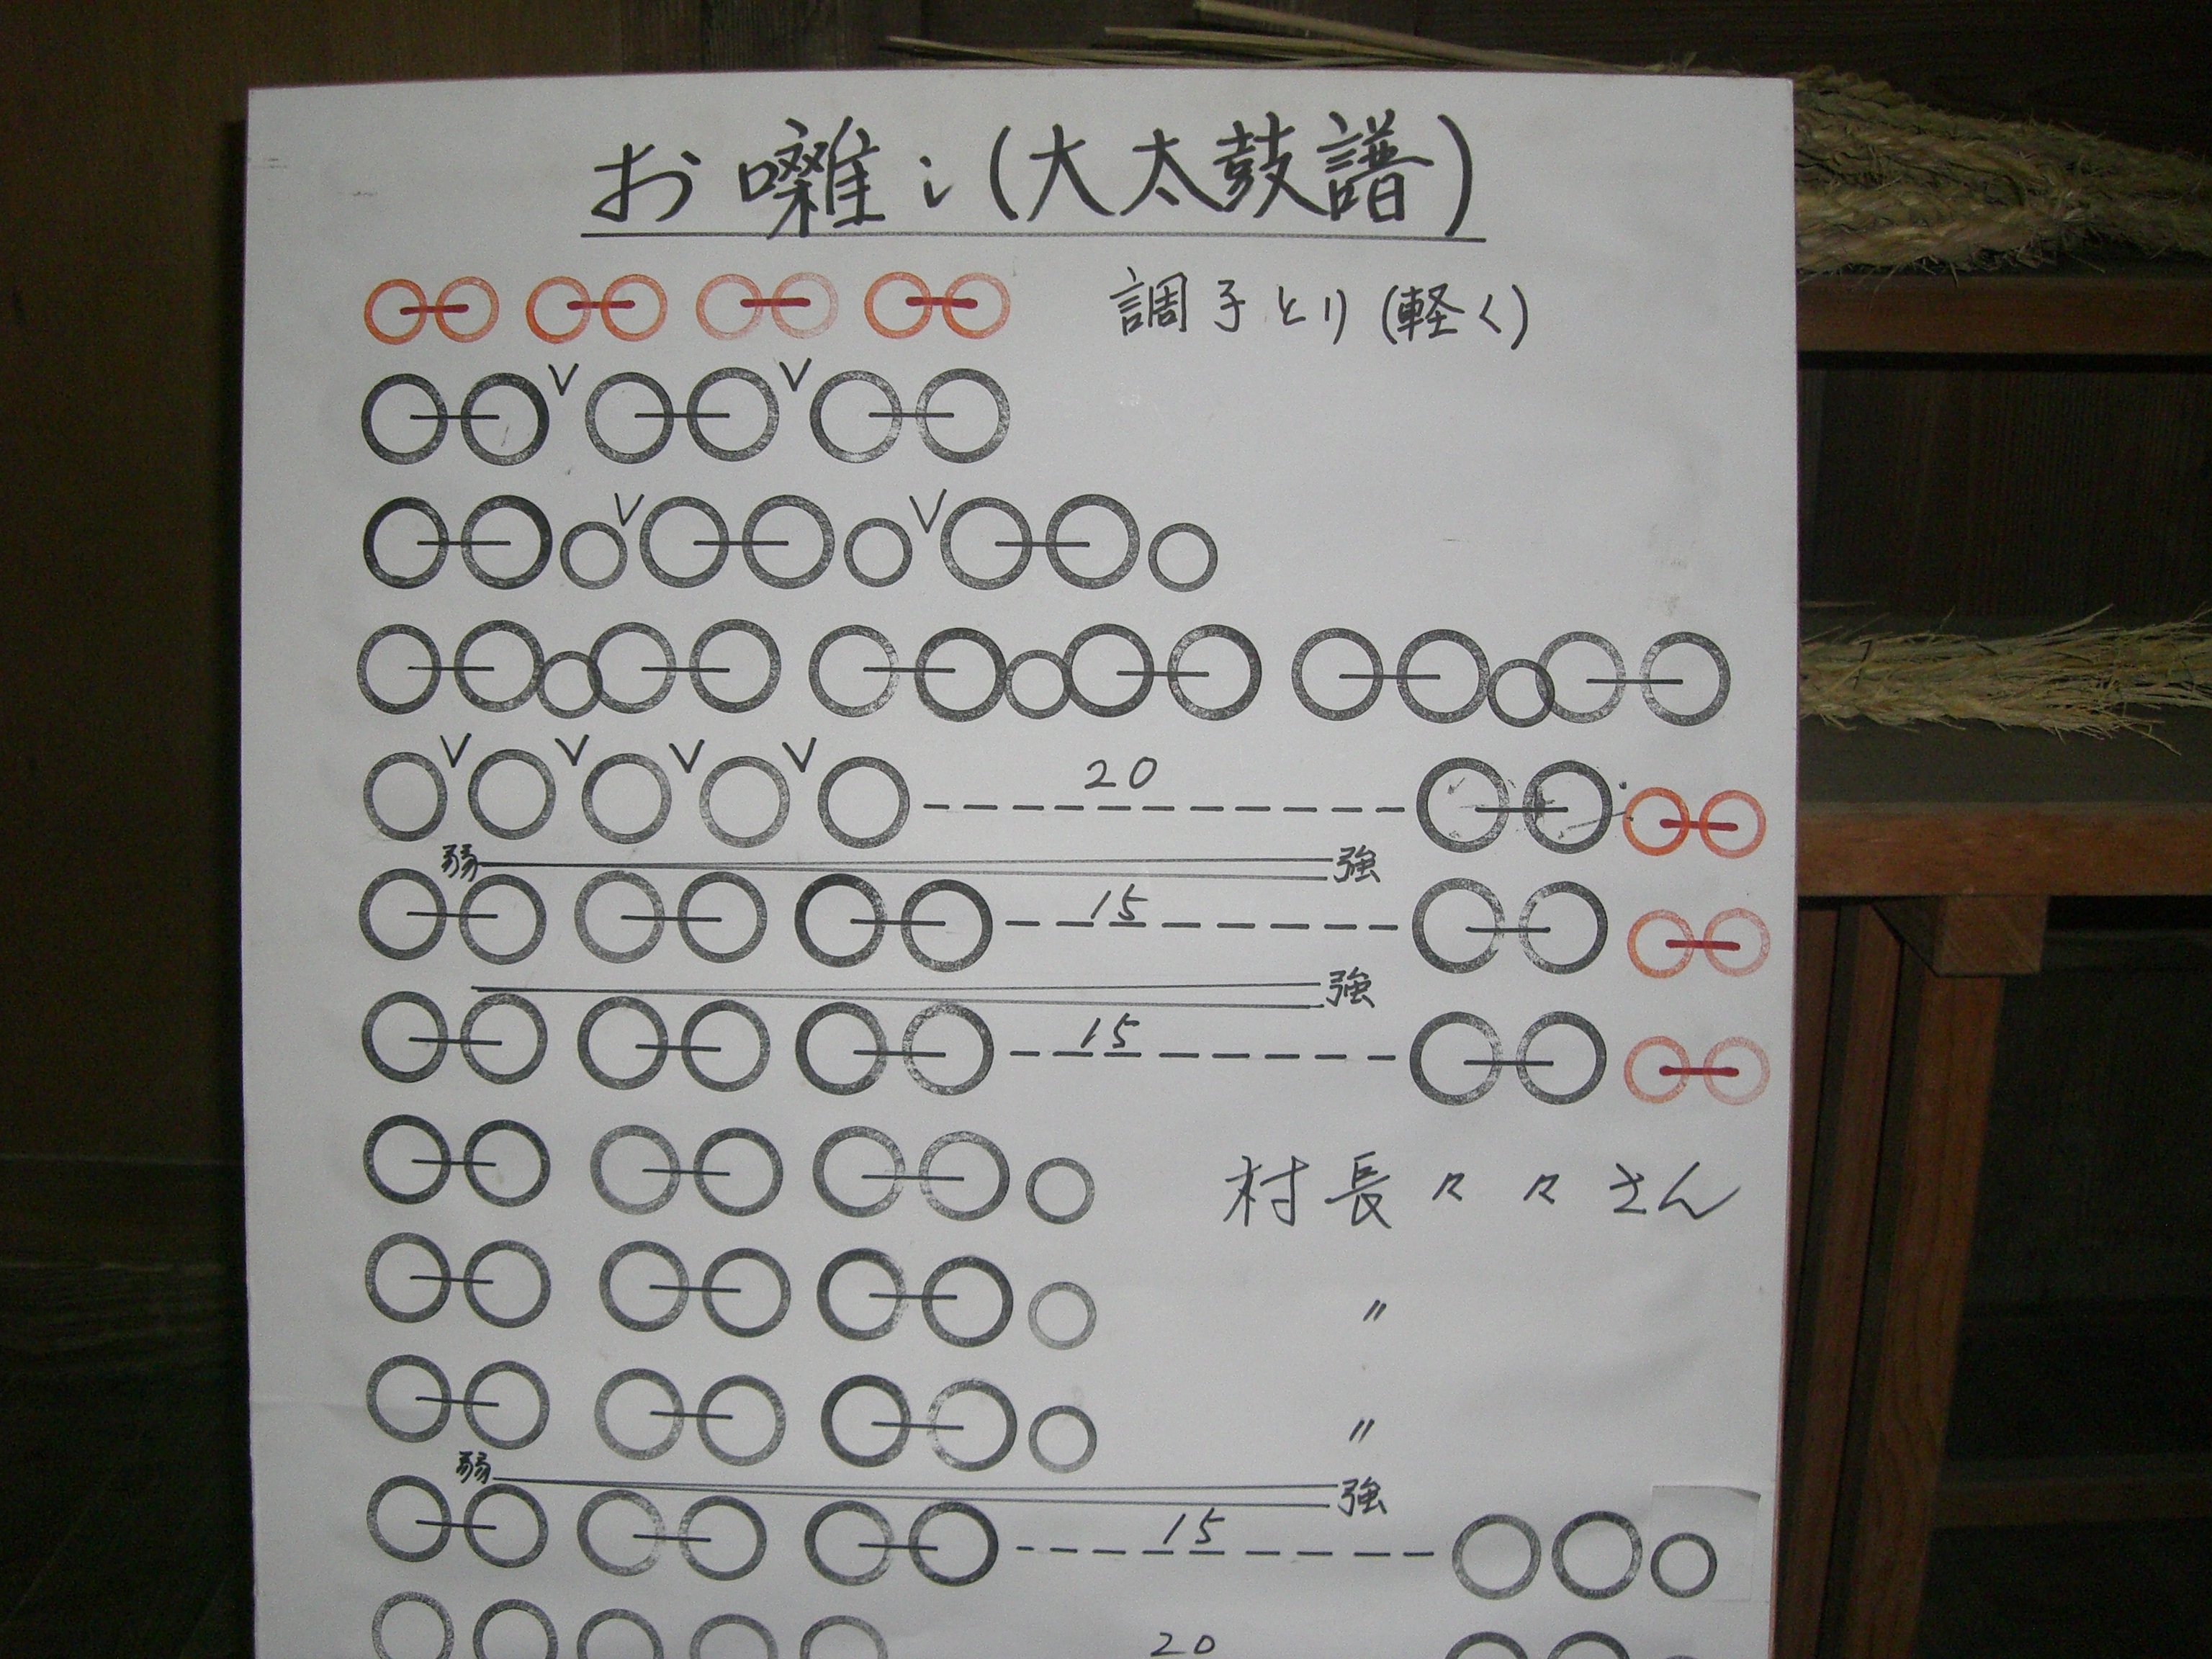 お囃い(大太鼓譜)
調子とり(軽く)
V V
V V
V V V V 20
弱 強
15
強
15
村長々々さん
〃
〃
弱 強
15
20